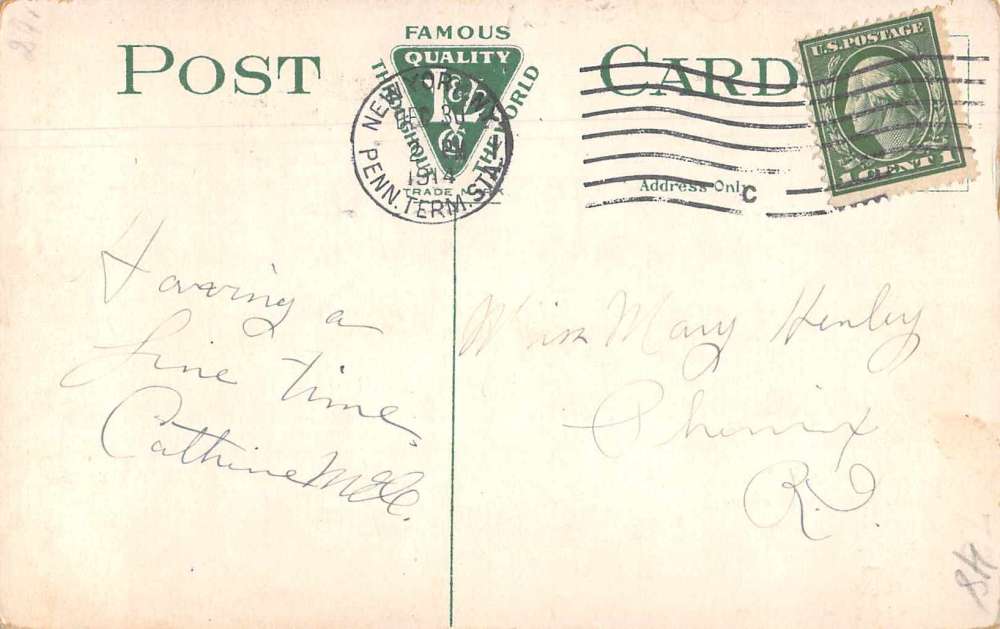 POST CARD
FAMOUS
QUALITY
THROUGHOUT THE WORLD
TRADE MARK
NEW YORK, N.Y.
SEP 30
1914
PENN. TERM. STA.
C
U.S. POSTAGE
1 CENT 1
Address Only
Having a
fine time.
Cathrine
Miss Mary Henley
Phenix
R.I.